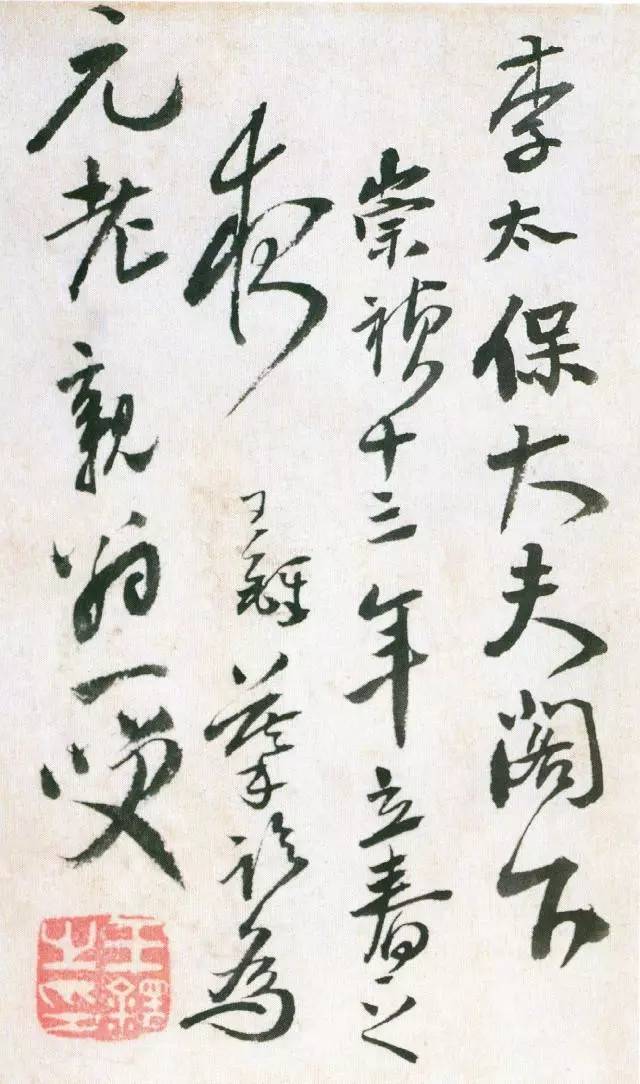 李太保大夫閣下
崇禎十三年立春之
夜 王鐸摹為
元老親翁一咲
王鐸之印